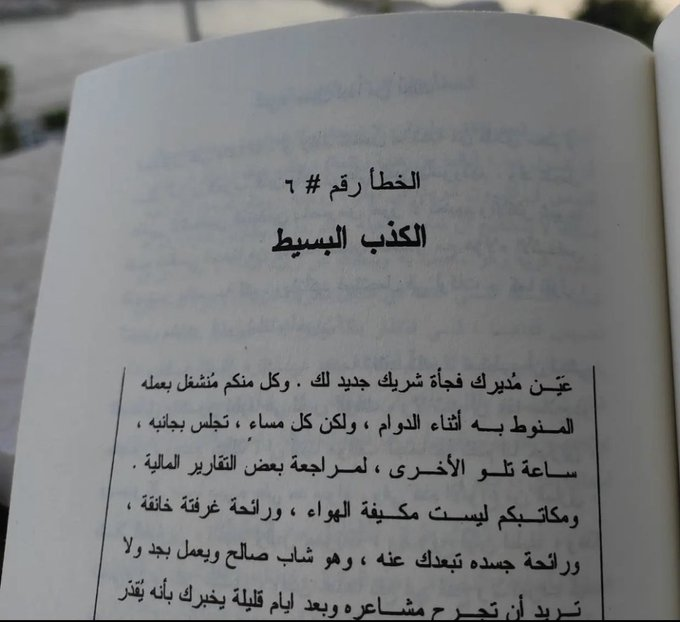 الخطأ رقم # ٦
الكذب البسيط
عَيَّن مُديرك فجأة شريك جديد لك . وكل منكم مُنشغل بعمله
المنوط به أثناء الدوام ، ولكن كل مساءٍ ، تجلس بجانبه ،
ساعة تلو الأخرى ، لمراجعة بعض التقارير المالية .
ومكاتبكم ليست مكيفة الهواء ، ورائحة غرفتة خانقة ،
ورائحة جسده تبعدك عنه ، وهو شاب صالح ويعمل بجد ولا
تريد أن تجرح مشاعره وبعد ايام قليلة يخبرك بأنه يُقدّر